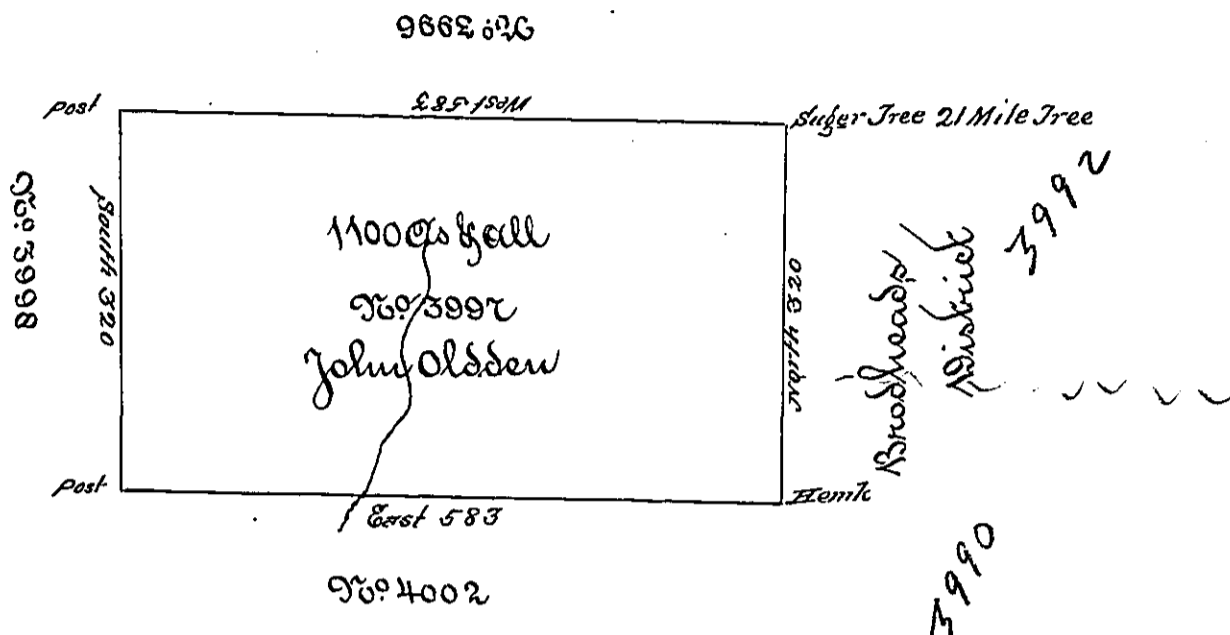 No. 3996
Post
West 583
Suger Tree 21 Mile Tree
No. 3998
South 320
1100 As & all
No. 3997
John Oldden
North 320
Brodheads
District
3992
Post
East 583
Hemk
No. 4002
3990